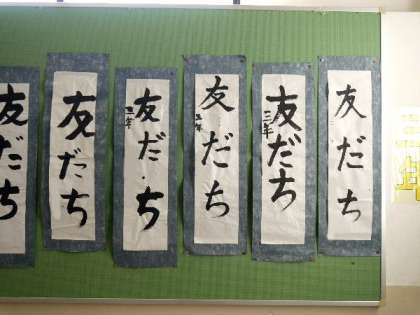 友だち
友だち
友だち
三年
友だち
三年
友だち
三年
友だち